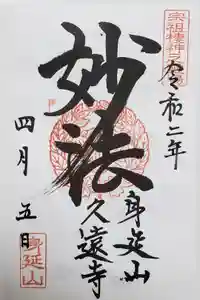 宗祖棲神之
令和二年
妙法
身延山
久遠寺
四月五日
身延山